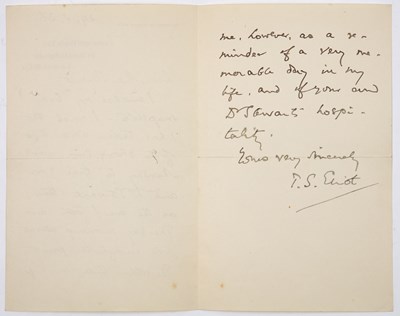 me, however, as a re-
minder of a very me-
morable day in my
life, and of your and
Dr Stewart's hospi-
tality.
Yours very sincerely
T. S. Eliot